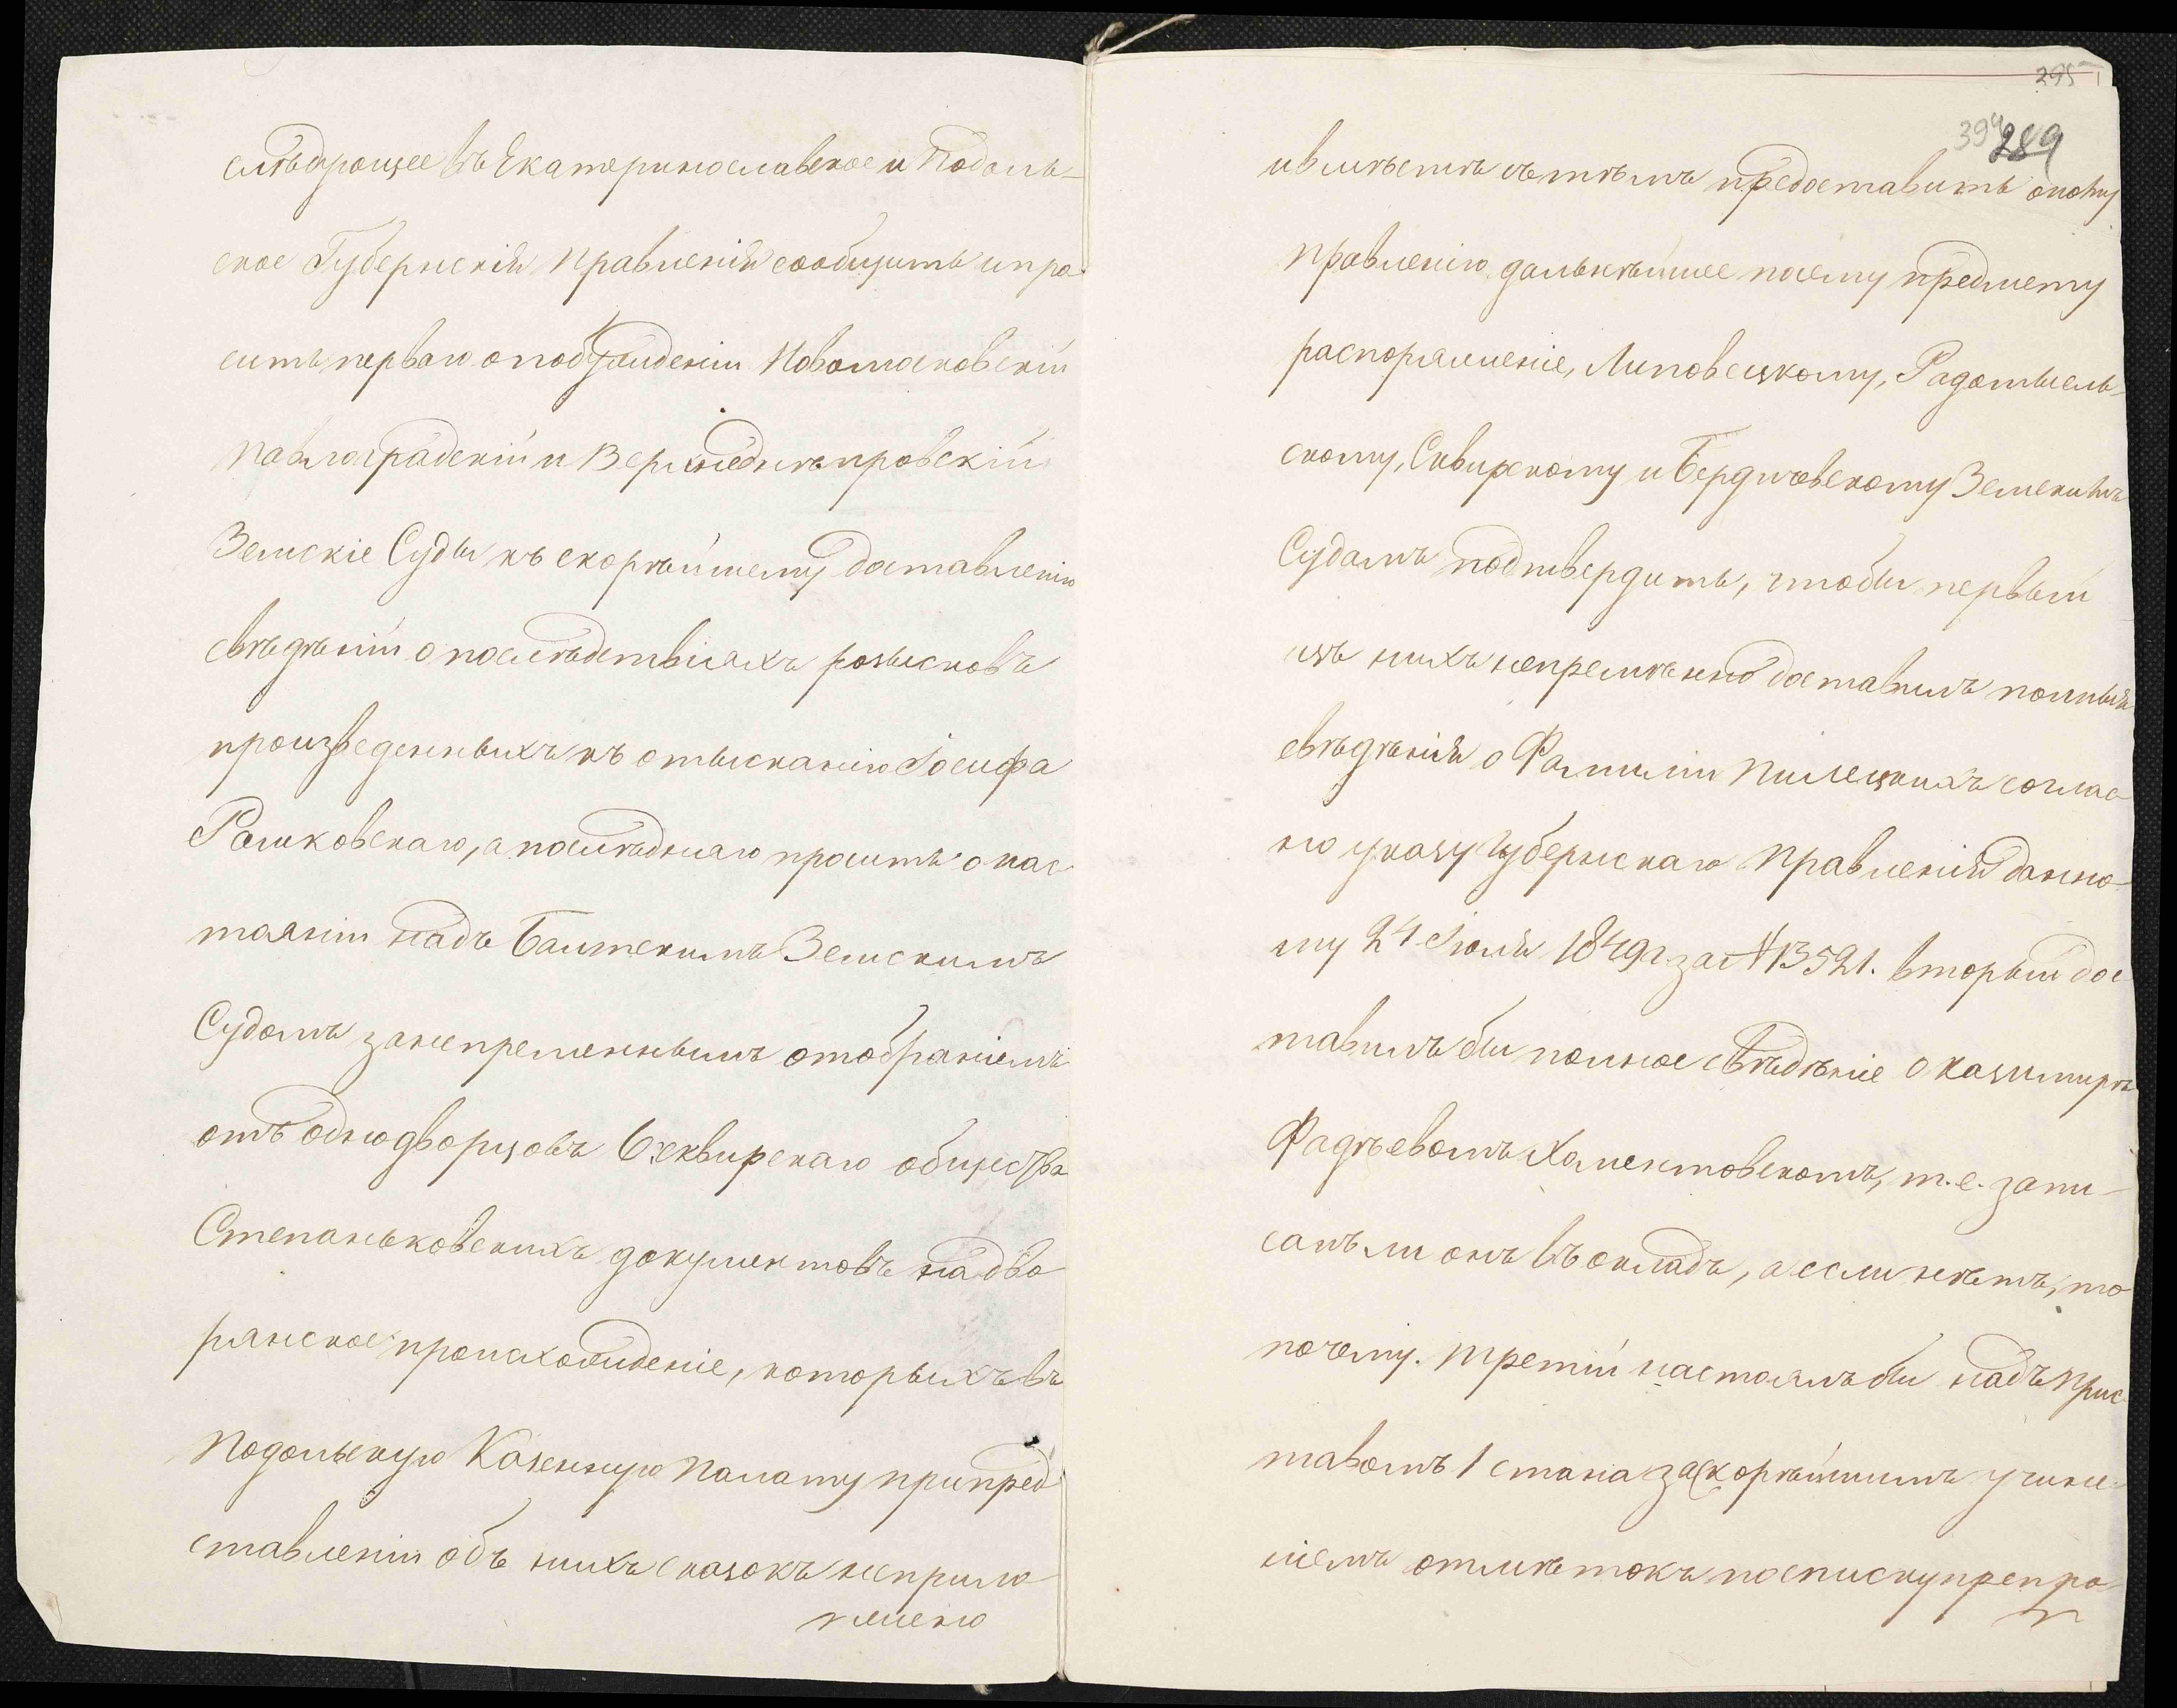 слѣдующее въ Екатеринославское и Подоль-
ское Губернскія Правленія сообщить и про-
сить перваго о побужденіи Новомосковскій
Павлоградскій и Верхнеднѣпровскій
Земскіе Суды къ скорѣйшему доставленію
свѣдѣній о послѣдствіяхъ розысковъ
произведенныхъ къ отысканію Іосифа
Рашковскаго, а послѣдняго просить о нас-
тояніи надъ Балтскимъ Земскимъ
Судомъ за непременнымъ отобраніемъ
отъ однодворцовъ Сквирскаго общества
Степаньковскихъ документовъ на дво-
рянское происхожденіе, которыхъ въ
Подольскую Казенную Палату при пред-
ставленіи объ нихъ сказокъ неприло-
жено
295
394
289
и вмѣстѣ съ тѣмъ предоставить оному
Правленію дальнѣйшее по сему предмету
распоряженіе, Липовецкому, Радомысль-
скому, Сквирскому и Бердичевскому Земскимъ
Судамъ подтвердить, чтобы первый
изъ нихъ непремѣнно доставилъ полныя
свѣдѣнія о Фамиліи Пилецкихъ соглас-
но указу Губернскаго Правленія данно-
му 24 Іюля 1849 г. за № 13521. вторый дос-
тавилъ бы полное свѣдѣніе о Казимирѣ
Фадѣевомъ Хаментовскомъ, т. е. запи-
санъ ли онъ въ окладъ, а если нѣтъ, то
почему. третій настоялъ бы надъ Прис-
тавомъ 1 стана за скорѣйшимъ учине-
ніемъ отмѣтокъ по списку препро-